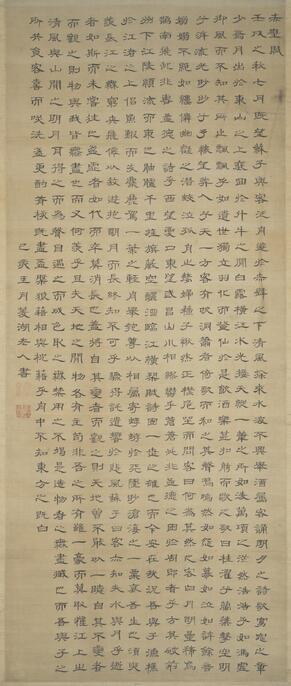 赤壁賦
壬戌之秋七月既望蘇子與客泛舟遊於赤壁之下清風徐來水波不興舉酒屬客誦明月之詩歌窈窕之章
少焉月出於東山之上裵回於斗牛之間白露橫江水光接天縱一葦之所如凌萬頃之茫然浩浩乎如馮虛
御風而不知其所止飄飄乎如遺世獨立羽化而登仙於是飲酒樂甚扣舷而歌之歌曰桂櫂兮蘭槳擊空明
兮泝流光渺渺兮予懷望美人兮天一方客有吹洞簫者倚歌而和之其聲嗚嗚然如怨如慕如泣如訴餘音
嫋嫋不絕如縷舞幽壑之潛蛟泣孤舟之嫠婦蘇子愀然正襟危坐而問客曰何為其然也客曰月明星稀烏
鵲南飛此非曹孟德之詩乎西望夏口東望武昌山川相繆鬱乎蒼蒼此非孟德之困於周郎者乎方其破荊
州下江陵順流而東也舳艫千里旌旗蔽空釃酒臨江橫槊賦詩固一世之雄也而今安在哉況吾與子漁樵
於江渚之上侶魚鰕而友麋鹿駕一葉之輕舟舉匏尊以相屬寄蜉蝣於天地渺滄海之一粟哀吾生之須臾
羨長江之無窮挾飛僊以遨遊抱明月而長終知不可乎驟得託遺響於悲風蘇子曰客亦知夫水與月乎逝
者如斯而未嘗往也盈虛者如代而卒莫消長也蓋將自其變者而觀之則天地曾不能以一瞬自其不變者
而觀之則物與我皆無盡也而又何羨乎且夫天地之間物各有主苟非吾之所有雖一豪而莫取惟江上之
清風與山間之明月耳得之而為聲目遇之而成色取之無禁用之不竭是造物者之無盡藏也而吾與子之
所共食客喜而咲洗盞更酌肴核既盡盃槃狼藉相與枕藉乎舟中不知東方之既白
己亥五月菱湖老人書